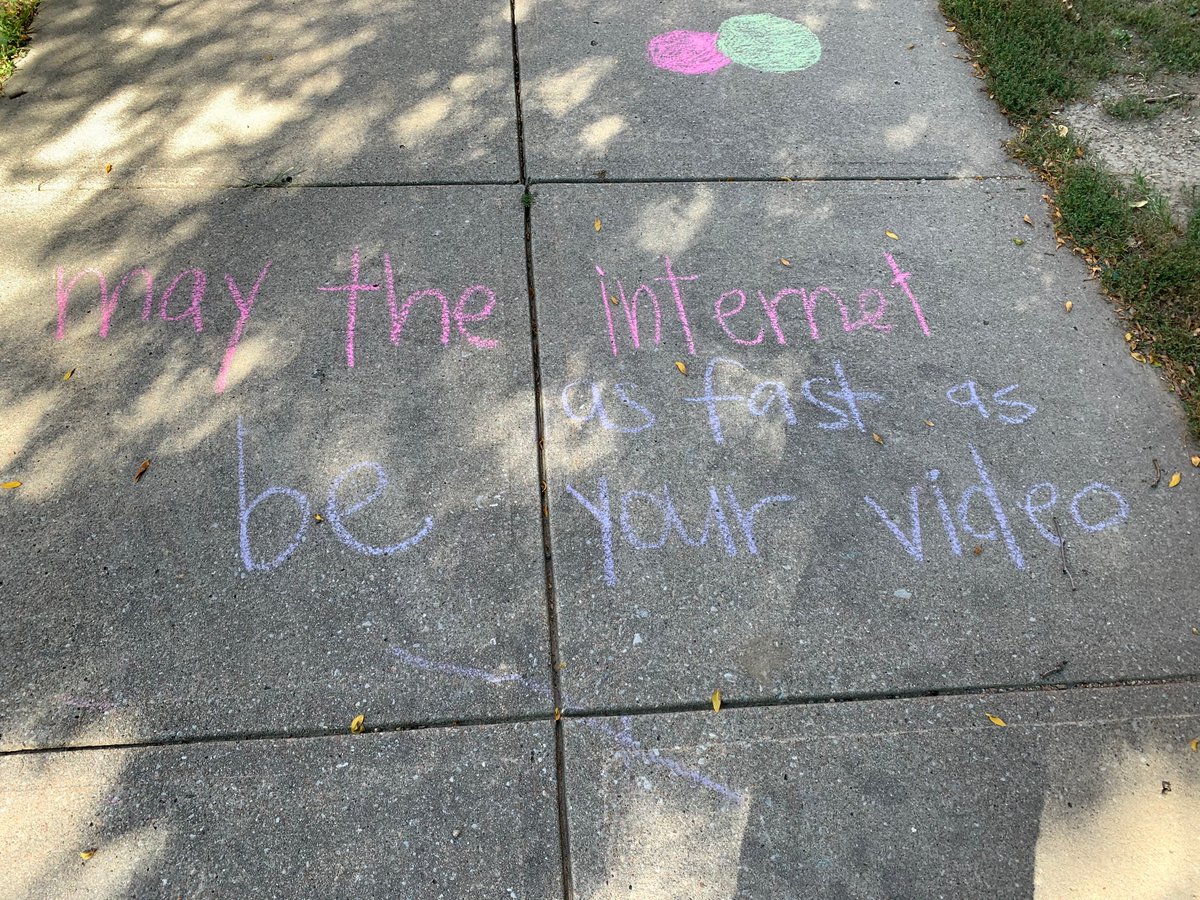 may the internet
be as fast as
your video